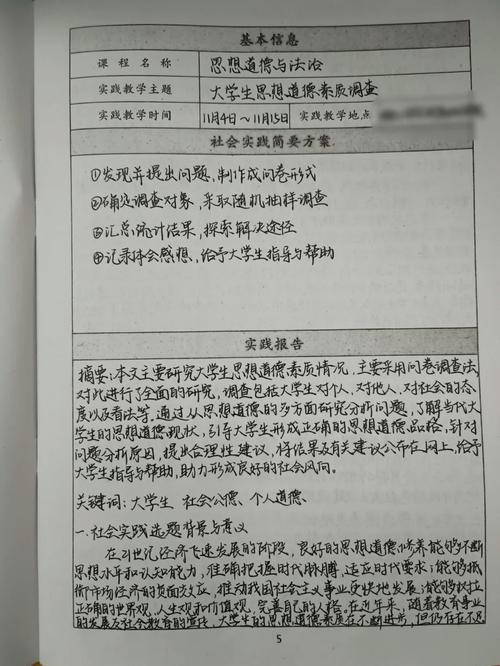 基本信息
课程名称 思想道德与法治
实践教学主题 大学生思想道德素质调查
实践教学时间 11月4日～11月15日 实践教学地点
社会实践简要方案
①发现并提出问题，制作成问卷形式
②确定调查对象，采取随机抽样调查
③汇总统计结果，探索解决途径
④记录体会感想，给予大学生指导与帮助
实践报告
摘要：本文主要研究大学生思想道德素质情况，主要采用问卷调查法，
对此进行了全面的研究，调查包括大学生对个人，对他人，对社会的态
度以及看法等，通过从思想道德的多方面研究分析问题，了解当代大
学生的思想道德现状，引导大学生形成正确的思想道德品格，针对
问题分析原因，提出合理性建议，将结果及有关建议公布在网上，给予
大学生指导与帮助，助力形成良好的社会风向。
关键词：大学生 社会公德、个人道德、
一.社会实践选题背景与意义
在21世纪经济飞速发展的阶段，良好的思想道德培养能够不断
思想水平和认知能力，准确把握时代脉搏，适应时代要求；能够抵
市场经济的负面效应，推动我国社会主义事业更快地发展；能够树立
正确的世界观，人生观和价值观，完善自己的人格。在近年来，随着教育事业
的发展及社会教育的宣传，大学生的思想道德素质在不断进步，但仍存在不足
5